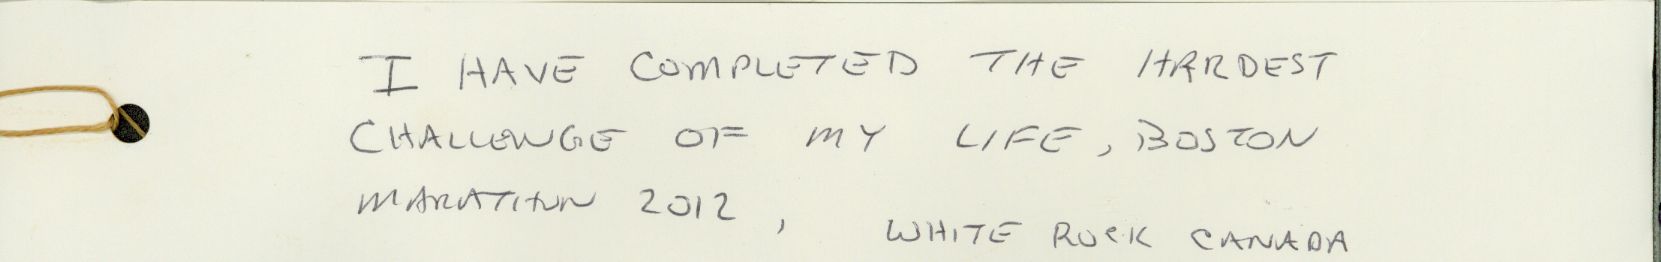 I HAVE COMPLETED THE HARDEST
CHALLENGE OF MY LIFE, BOSTON
MARATHON 2012,
WHITE ROCK CANADA